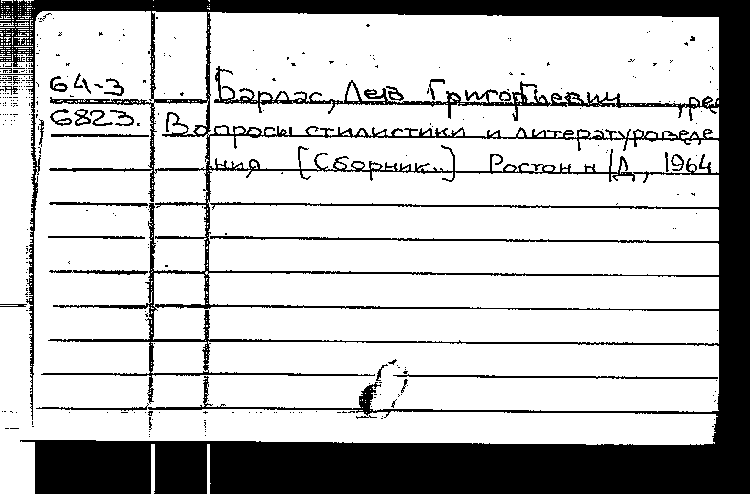 64-3 Барлас, Лев Григорьевич, ре
6823. Вопросы стилистики и литературоведе
ния [Сборник..] Ростон н/Д, 1964